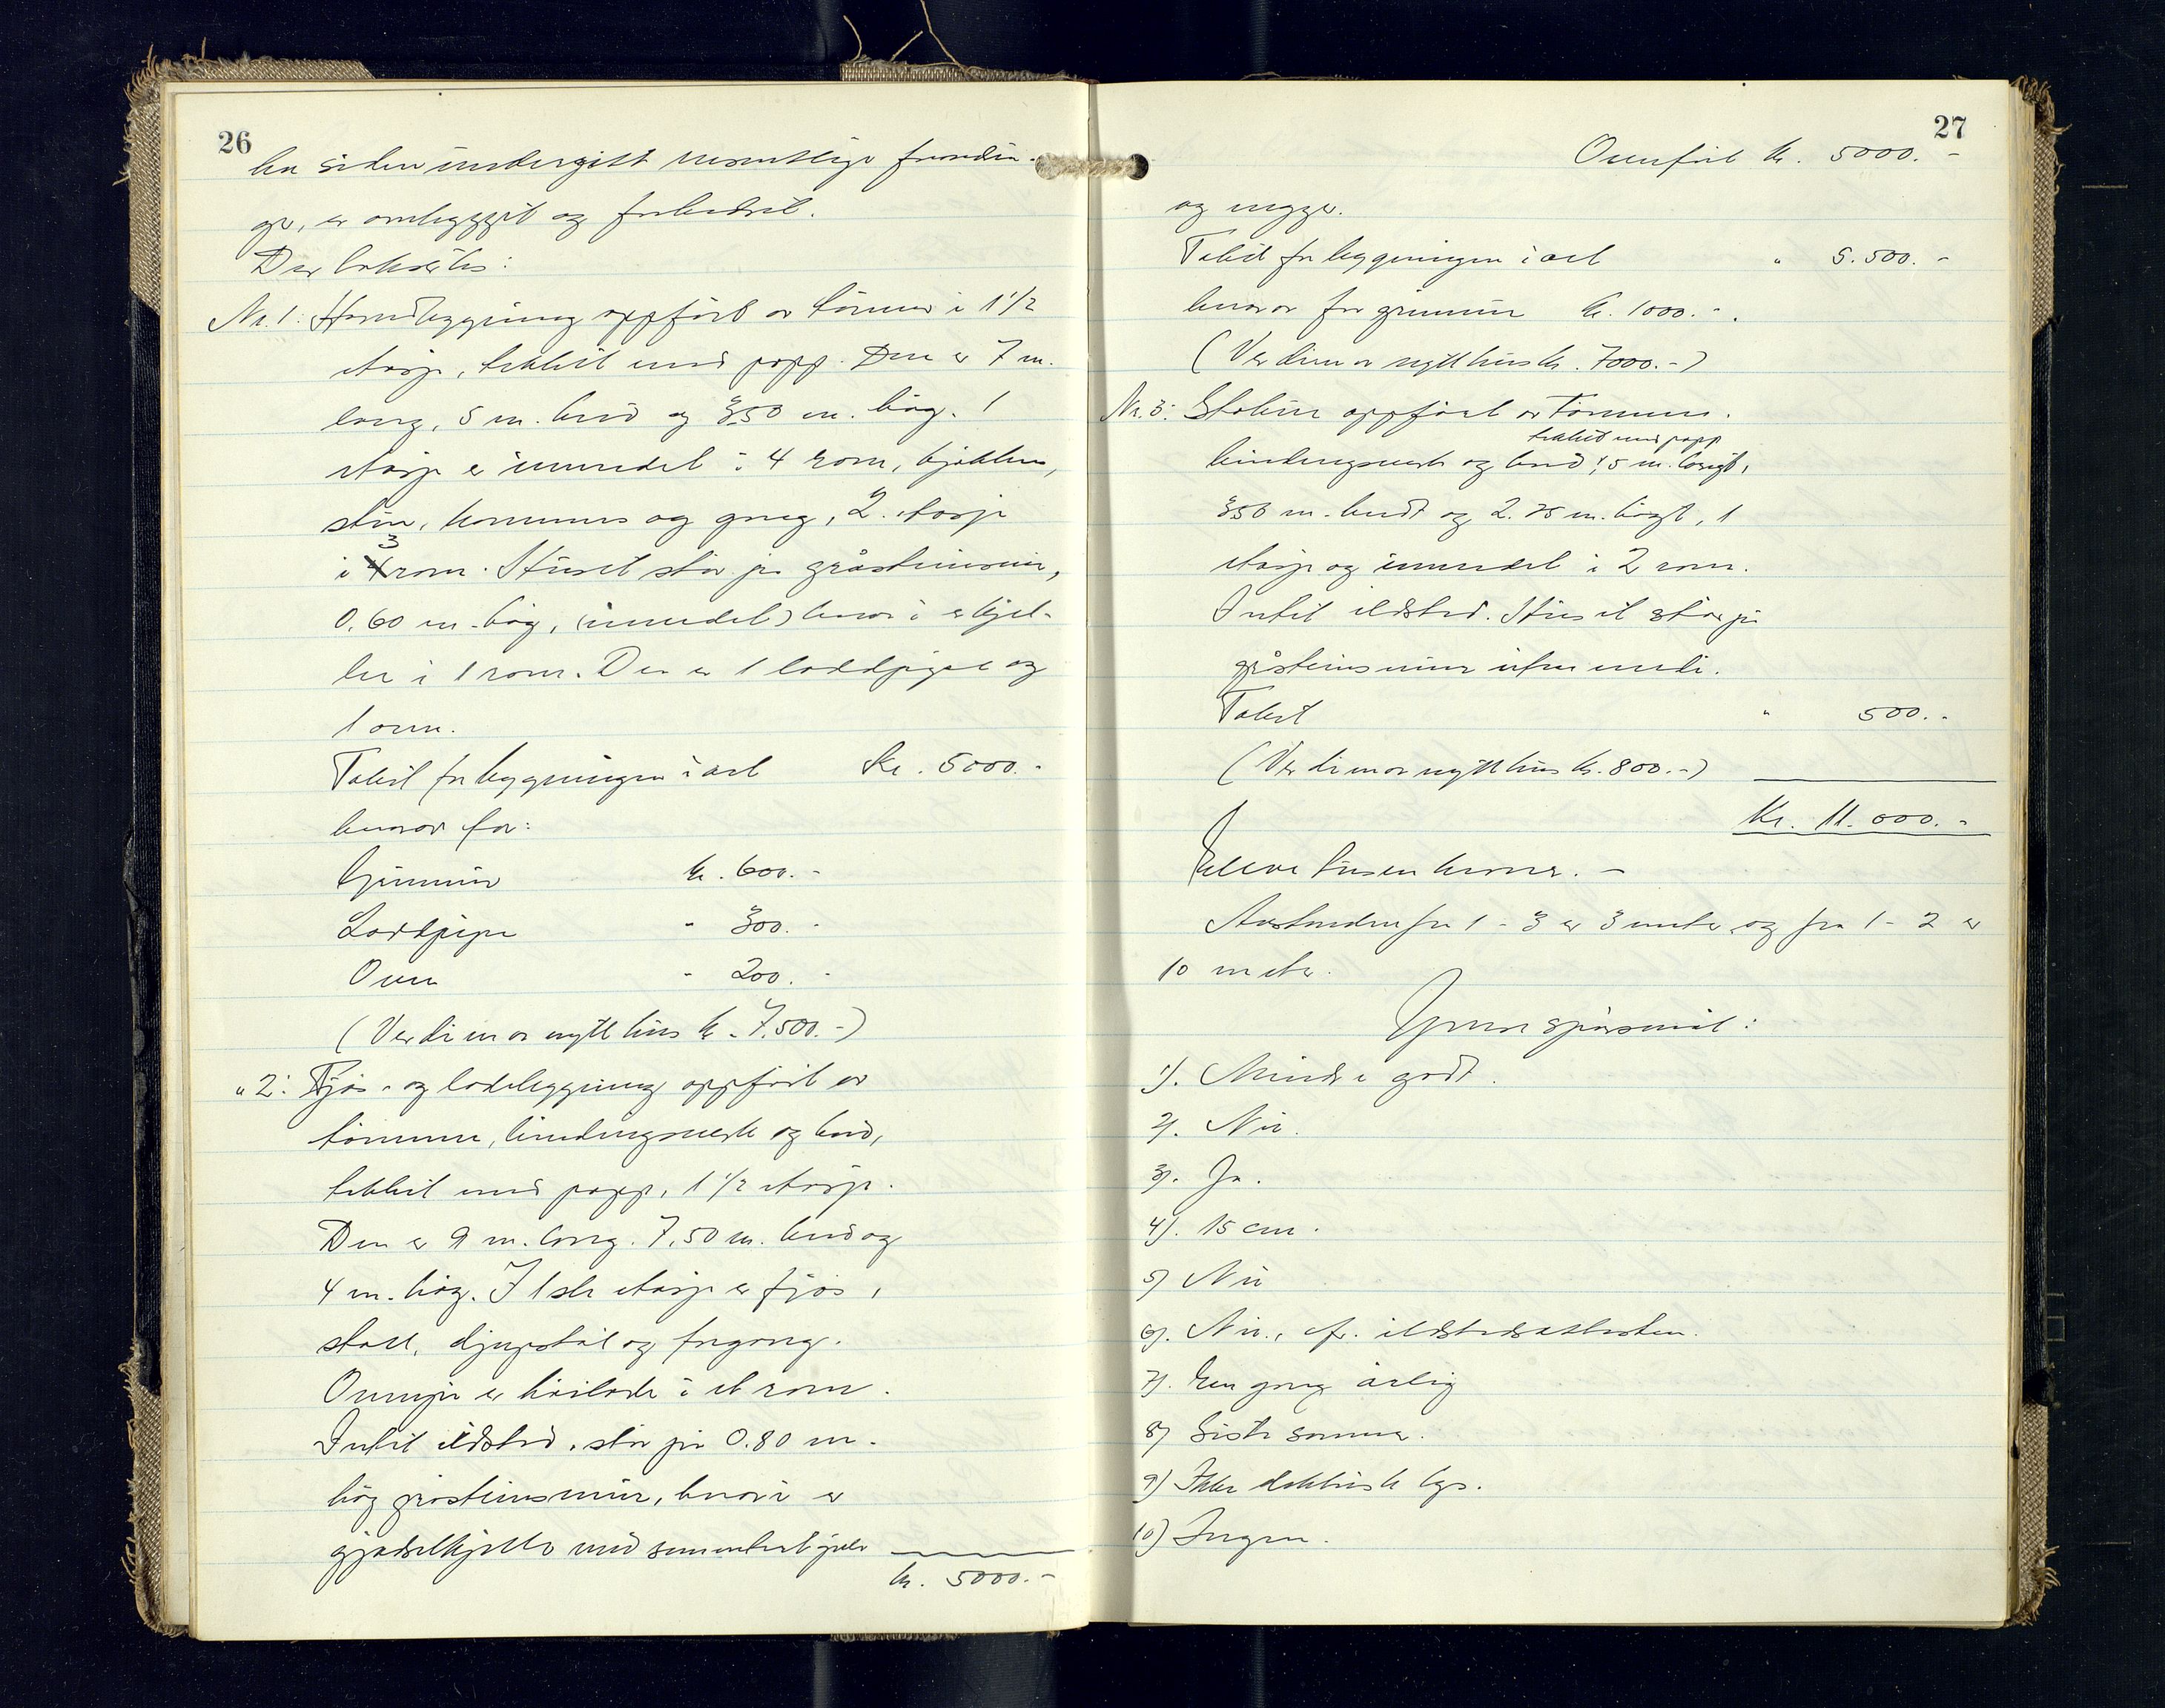 26
ha siden undergått vesentlige forandrin-
ger, er ombygget og forbedret.
Der takseres:
Nr. 1: Hovedbygning oppført av tømmer i 1 1/2
etasje, tekket med papp. Den er 7 m.
lang, 5 m. bred og 3.50 m. høg. 1
etasje er inndelt i 4 rom, kjøkken,
stue, kammers og gang, 2. etasje
i 3 rom. Huset står på gråsteinsmur,
0,60 m. høg, (inndelt) hvori er kjel-
ler i 1 rom. Der er 1 loddpipe og
1 ovn.
Takst for bygningen i alt Kr. 5000.-
herav for:
Grunnmur kr. 600.-
Loddpipe " 300.-
Ovn " 200.-
(Verdien av nytt hus kr. 7.500.-)
" 2: Fjøs- og ladebygning oppført av
tømmer, bindingsverk og bord,
tekket med papp, 1 1/2 etasje.
Den er 9 m. lang. 7,50 m. bred og
4 m. høg. I 1ste etasje er fjøs,
stall, djupstal og forgang.
Ovenpå er høilade i et rom.
Intet ildsted, står på 0.80 m.
høg gråsteinsmur, hvori er
gjødselkjeller med sementert golv
kr. 5000.-
27
Overført kr. 5000.-
og vegger.
Takst for bygningen i alt " 5.500.-
herav for grunnmur kr. 1000.-.
(Verdien av nytt hus kr. 7000.-)
Nr. 3: Stabur oppført av tømmer.
tekket med papp
bindingsverk og bord, 5 m. langt,
3.50 m. bredt og 2.75 m. høgt, 1
etasje og inndelt i 2 rom.
Intet ildsted. Huset står på
gråsteinsmur uten verdi.
Takst " 500.-
(Verdien av nytt hus kr. 800.-)
Kr. 11.000.-
Elleve tusen kroner.-
Avstanden fra 1 - 3 er 3 meter og fra 1 - 2 er
10 meter.
spørsmål:
1). Mindre godt.
2). Nei.
3). Ja.
4). 15 cm.
5) Nei
6). Nei., cfr. ildstedsattesten.
7). Een gang årlig
8) Siste sommer.
9) Ikke elektrisk lys.
10) Ingen.